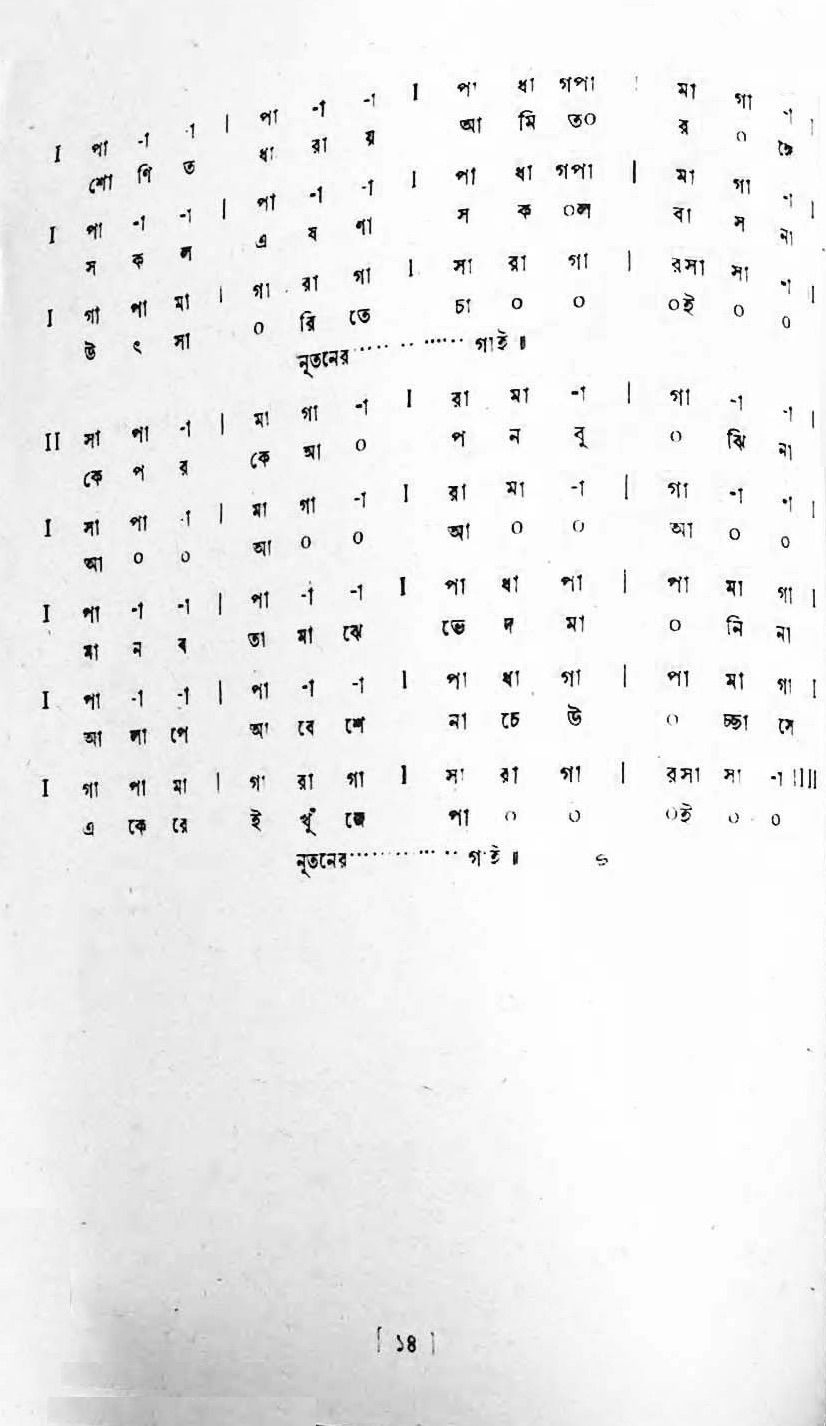 I পা -া -া | পা -া -া I পা ধা গপা | মা গা -া |
শো ণি ত ধা রা য় আ মি ত০ র ০ ঙ্গে
I পা -া -া | পা -া -া I পা ধা গপা | মা গা -া |
স ক ল এ ষ ণা স ক ০ল বা স না
I গা পা মা | গা রা গা I সা রা গা | রসা সা -া |
উ ৎ সা ০ রি তে চা ০ ০ ০ই ০ ০
নূতনের ............ গাই ॥
II সা পা -া | মা গা -া I রা মা -া | গা -া -া |
কে প র কে আ ০ প ন বু ০ ঝি না
I সা পা -া | মা গা -া I রা মা -া | গা -া -া |
আ ০ ০ আ ০ ০ আ ০ ০ আ ০ ০
I পা -া -া | পা -া -া I পা ধা পা | পা মা গা |
মা ন ব তা মা ঝে ভে দ মা ০ নি না
I পা -া -া | পা -া -া I পা ধা গা | পা মা গা I
আ লা পে আ বে শে না চে উ ০ চ্ছা সে
I গা পা মা | গা রা গা I সা রা গা | রসা সা -া IIII
এ কে রে ই খুঁ জে পা ০ ০ ০ই ০ ০
নূতনের ............... গাই ॥
[ ১৪ ]